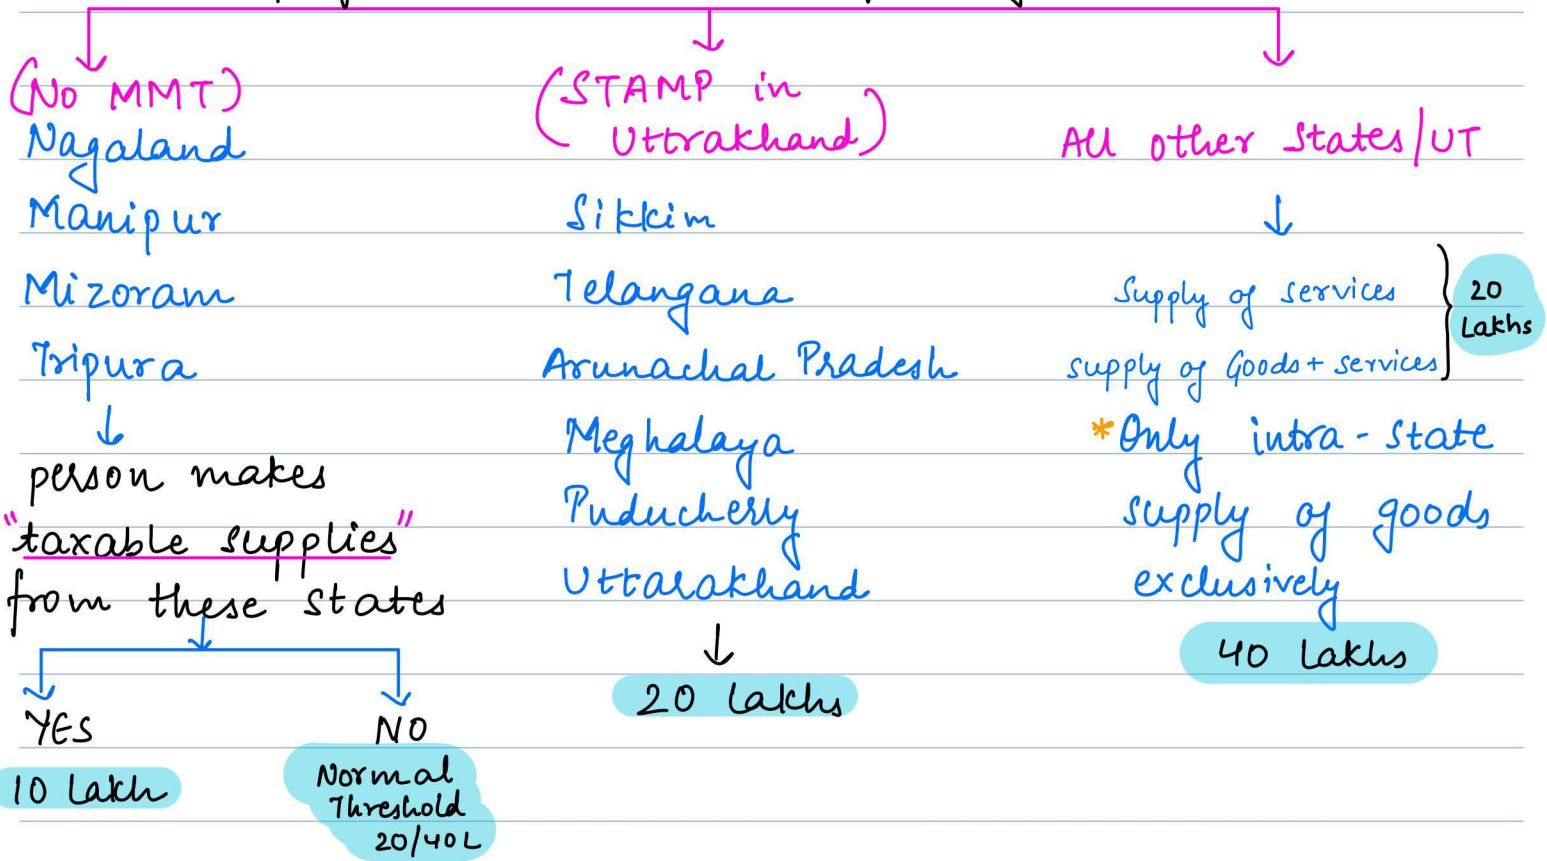 (No MMT)
Nagaland
Manipur
Mizoram
Tripura
person makes
"taxable supplies"
from these states
YES
10 Lakh
NO
Normal
Threshold
20/40L
(STAMP in
Uttrakhand)
Sikkim
Telangana
Arunachal Pradesh
Meghalaya
Puducherry
Uttarakhand
20 Lakhs
All other states/UT
Supply of services
supply of Goods+ services
20
Lakhs
*Only intra-state
supply of goods
exclusively
40 Lakhs